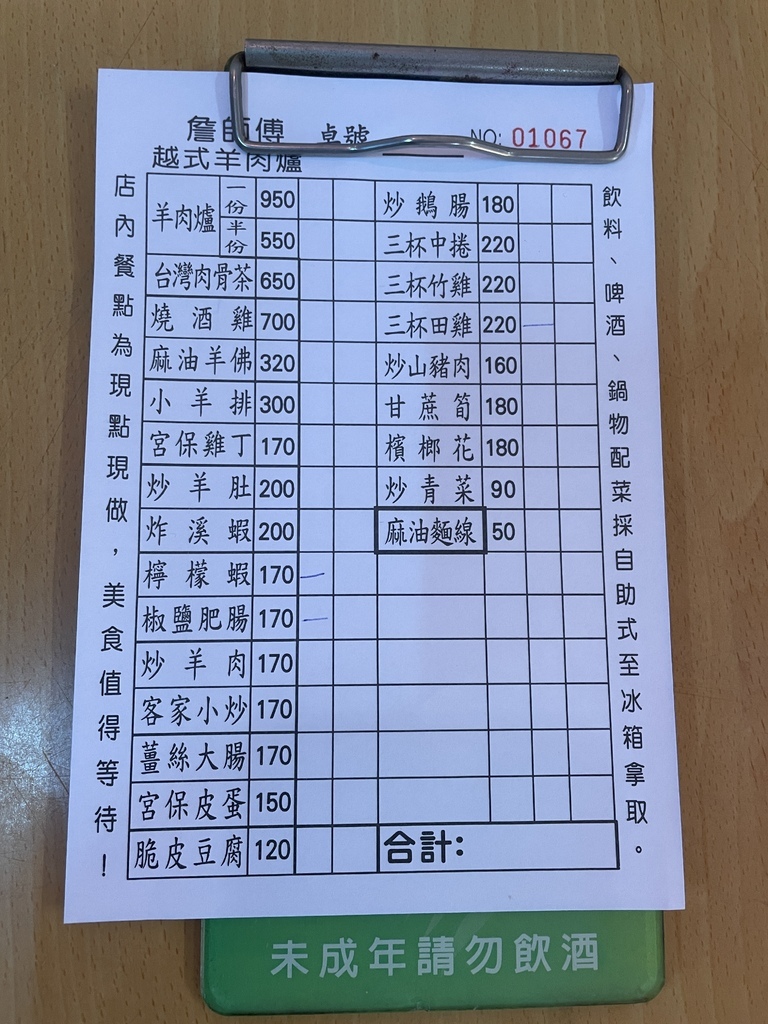 詹師傅 桌號 NO: 01067
越式羊肉爐
店內餐點為現點現做，美食值得等待！
羊肉爐 一份 950
半份 550
台灣肉骨茶 650
燒酒雞 700
麻油羊佛 320
小羊排 300
宮保雞丁 170
炒羊肚 200
炸溪蝦 200
檸檬蝦 170 一
椒鹽肥腸 170 一
炒羊肉 170
客家小炒 170
薑絲大腸 170
宮保皮蛋 150
脆皮豆腐 120
炒鵝腸 180
三杯中捲 220
三杯竹雞 220
三杯田雞 220 一
炒山豬肉 160
甘蔗筍 180
檳榔花 180
炒青菜 90
麻油麵線 50
合計：
飲料、啤酒、鍋物配菜採自助式至冰箱拿取。
未成年請勿飲酒